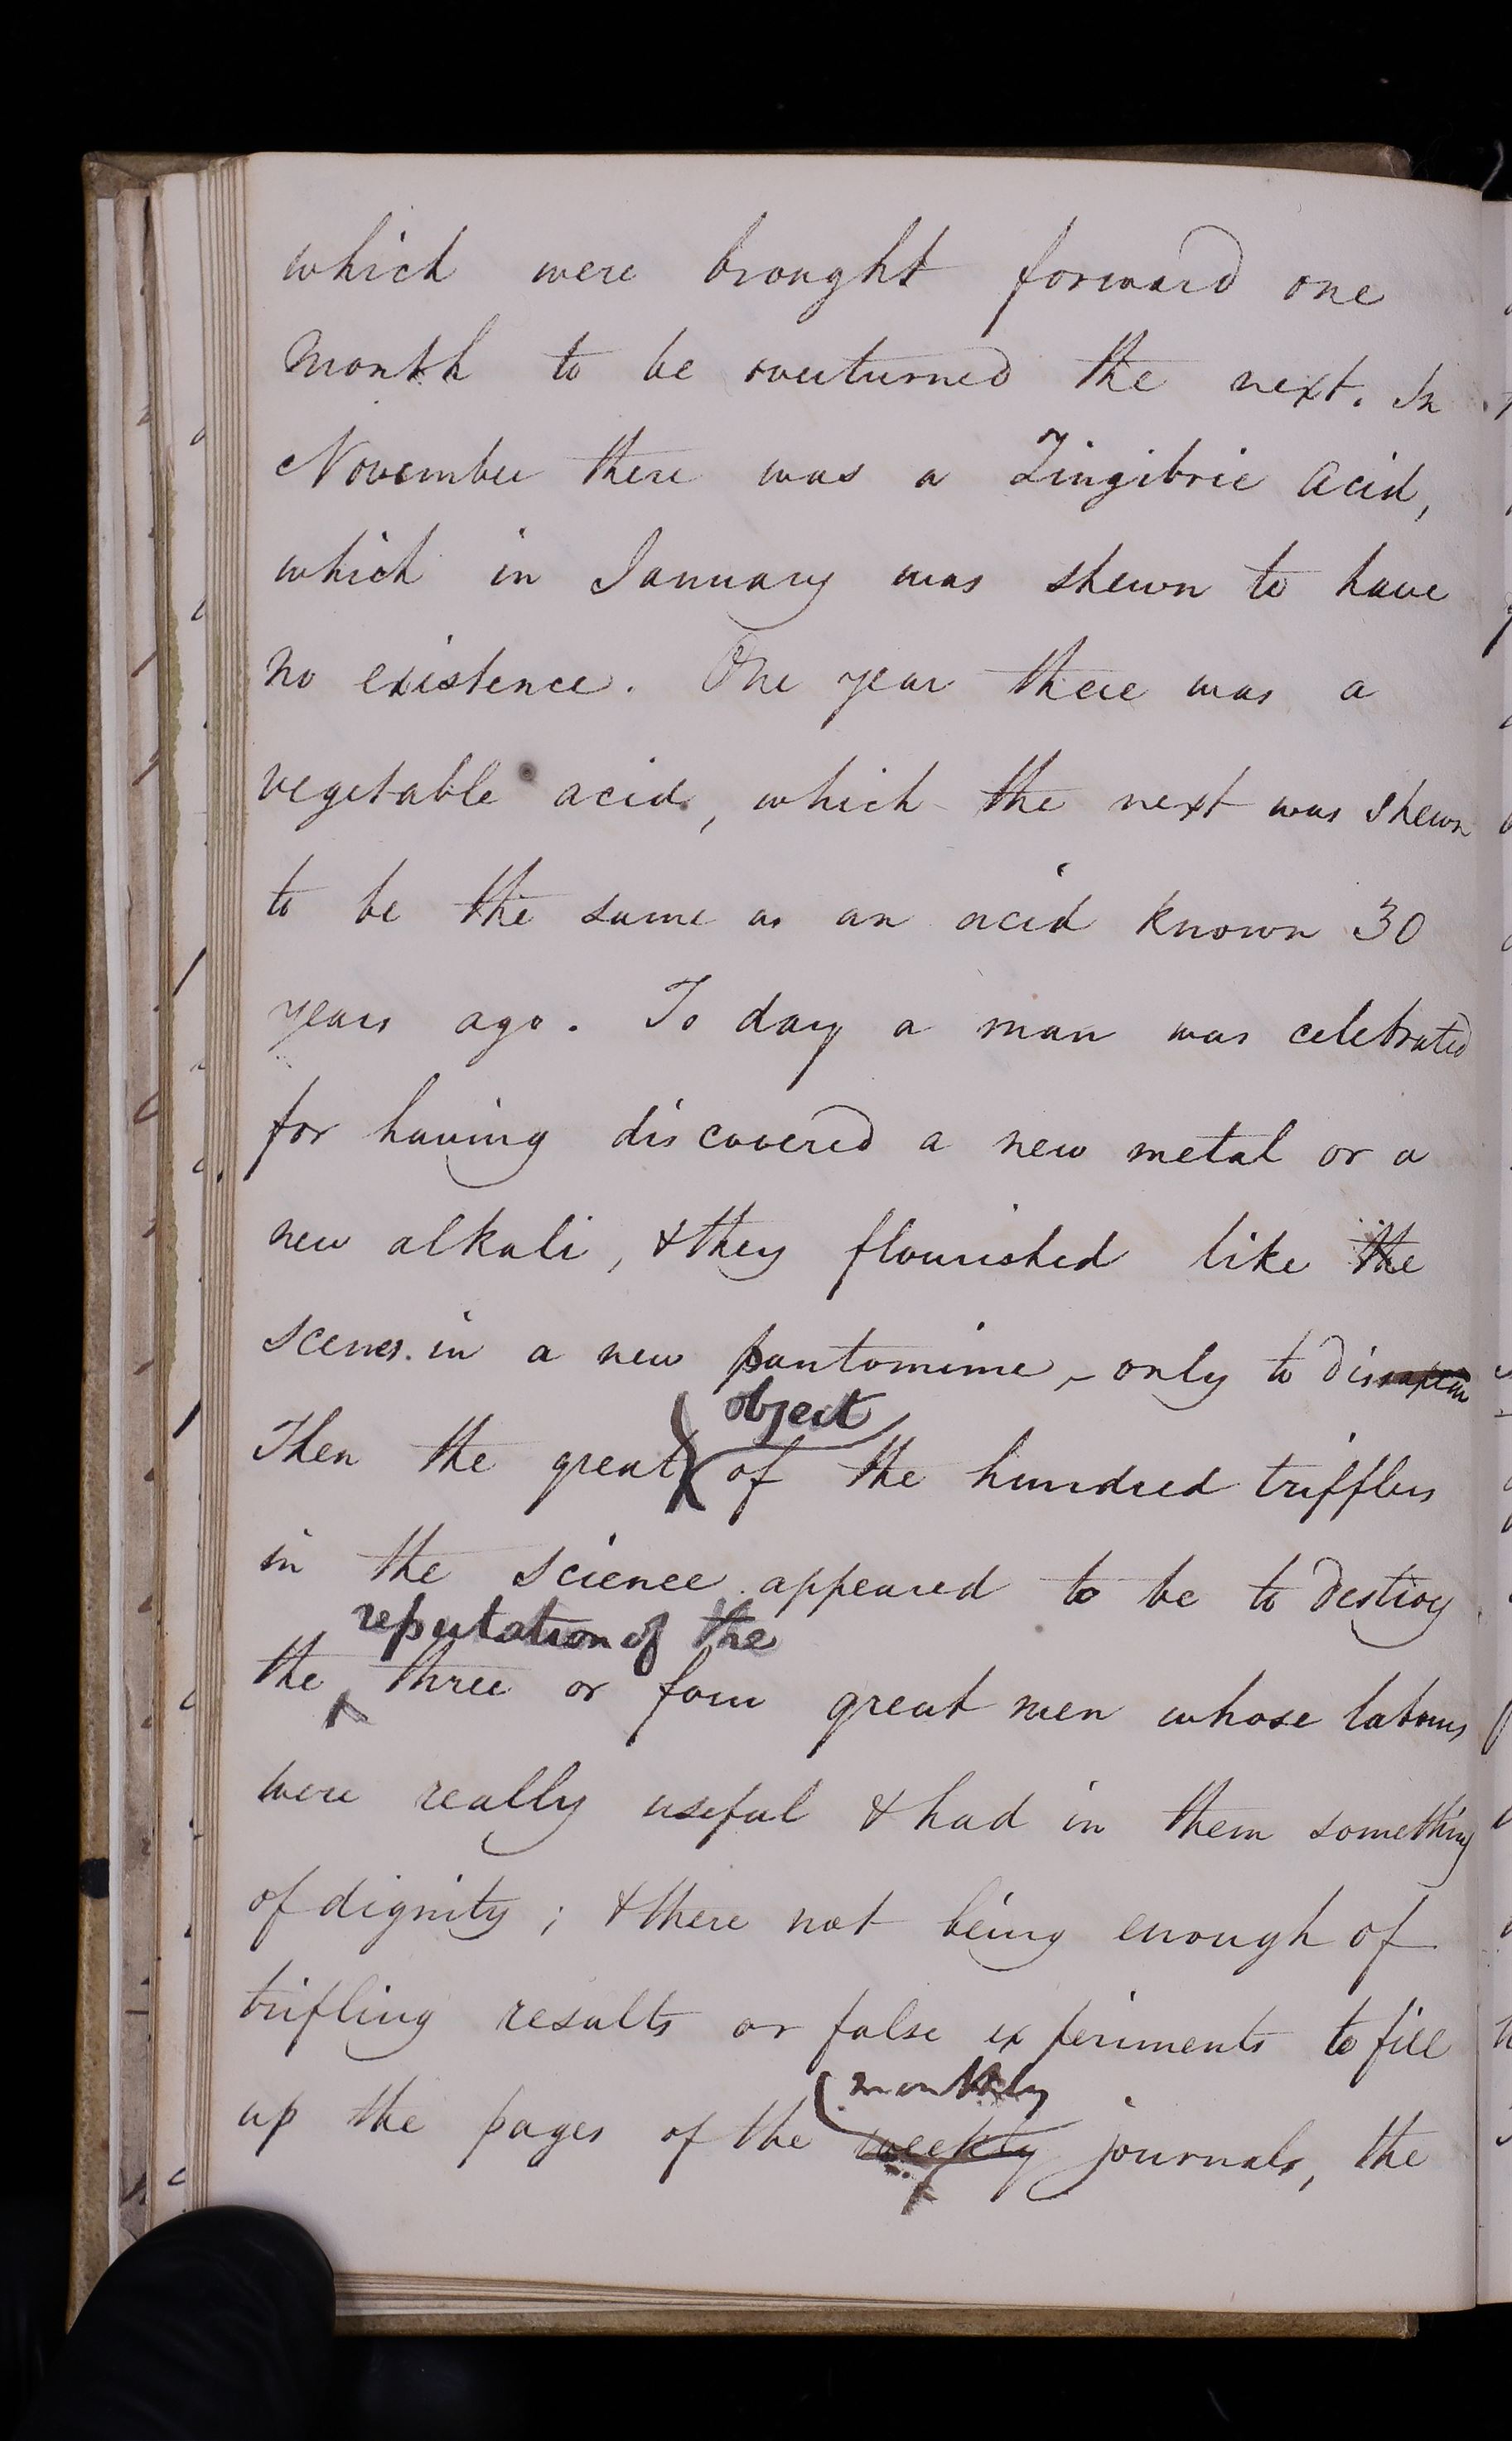 which were brought forward one
month to be overturned the next. In
November there was a Zingibric acid,
which in January was shewn to have
no existence. One year there was a
vegetable acid, which the next was shewn
to be the same as an acid known 30
years ago. To day a man was celebrated
for having discovered a new metal or a
new alkali, & they flourished like the
scenes in a new pantomime, only to disappear
object
Then the great of the hundred trifflers
in the science appeared to be to destroy
reputation of the
the three or four great men whose labours
were really useful & had in them something
of dignity; & there not being enough of
trifling results or false experiments to fill
monthly
up the pages of the weekly journals, the